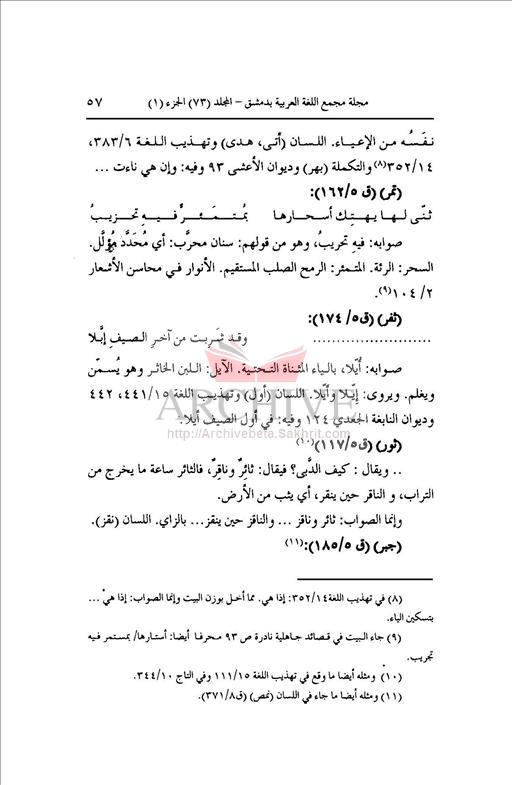 مجلة مجمع اللغة العربية بدمشق – المجلد (٧٣) الجزء (١) ٥٧
نفَسُه من الإعياء. اللسان (أتى، هدى) وتهذيب اللغة ٣٨٣/٦،
٣٥٢/١٤(٨) والتكملة (بهر) وديوان الأعشى ٩٣ وفيه: وإن هي ناءت ...
(تمر) (ق ١٦٢/٥):
ثنّى لها يهتِك أسحارها بمُتمَئرٍّ فيه تحزيبُ
صوابه: فيه تحريبُ، وهو من قولهم: سنان محرَّب: أي مُحَدَّد مُؤلَّل.
السحر: الرئة. المتمئر: الرمح الصلب المستقيم. الأنوار في محاسن الأشعار
٢/ ١٠٤(٩).
(ثفر) (ق٥/ ١٧٤):
......................... وقد شَربت من آخرِ الصيفِ إبَّلا
صوابه: أُيَّلا، بالياء المثناة التحتية. الآيل: اللبن الخاثر وهو يُسمّن
ويغلم. ويروى: إيّلا وأيّلا. اللسان (أول) وتهذيب اللغة ٤٤١/١٥، ٤٤٢
وديوان النابغة الجعدي ١٢٤ وفيه: في أول الصيف أيلا.
ARCHIVE
http://Archivebeta.Sakhrit.com
(ثور) (ق١١٧/٥)(١٠)
.. ويقال : كيف الدَّبى؟ فيقال: ثائرٌ وناقِرٌ، فالثائر ساعة ما يخرج من
التراب، و الناقر حين ينقر، أي يثب من الأرض.
وإنما الصواب: ثائر وناقز ... والناقز حين ينقز... بالزاي. اللسان (نقز).
(جبر) (ق ١٨٥/٥):(١١)
(٨) في تهذيب اللغة٣٥٢/١٤: إذا هي. مما أخل بوزن البيت وإنما الصواب: إذا هيْ ...
بتسكين الياء.
(٩) جاء البيت في قصائد جاهلية نادرة ص ٩٣ محرفا أيضا: أستارها/ بمستمر فيه
تجريب.
(١٠) ومثله أيضا ما وقع في تهذيب اللغة ١١١/١٥ وفي التاج ٣٤٤/١٠.
(١١) ومثله أيضا ما جاء في اللسان (نمص) (ق٣٧١/٨)